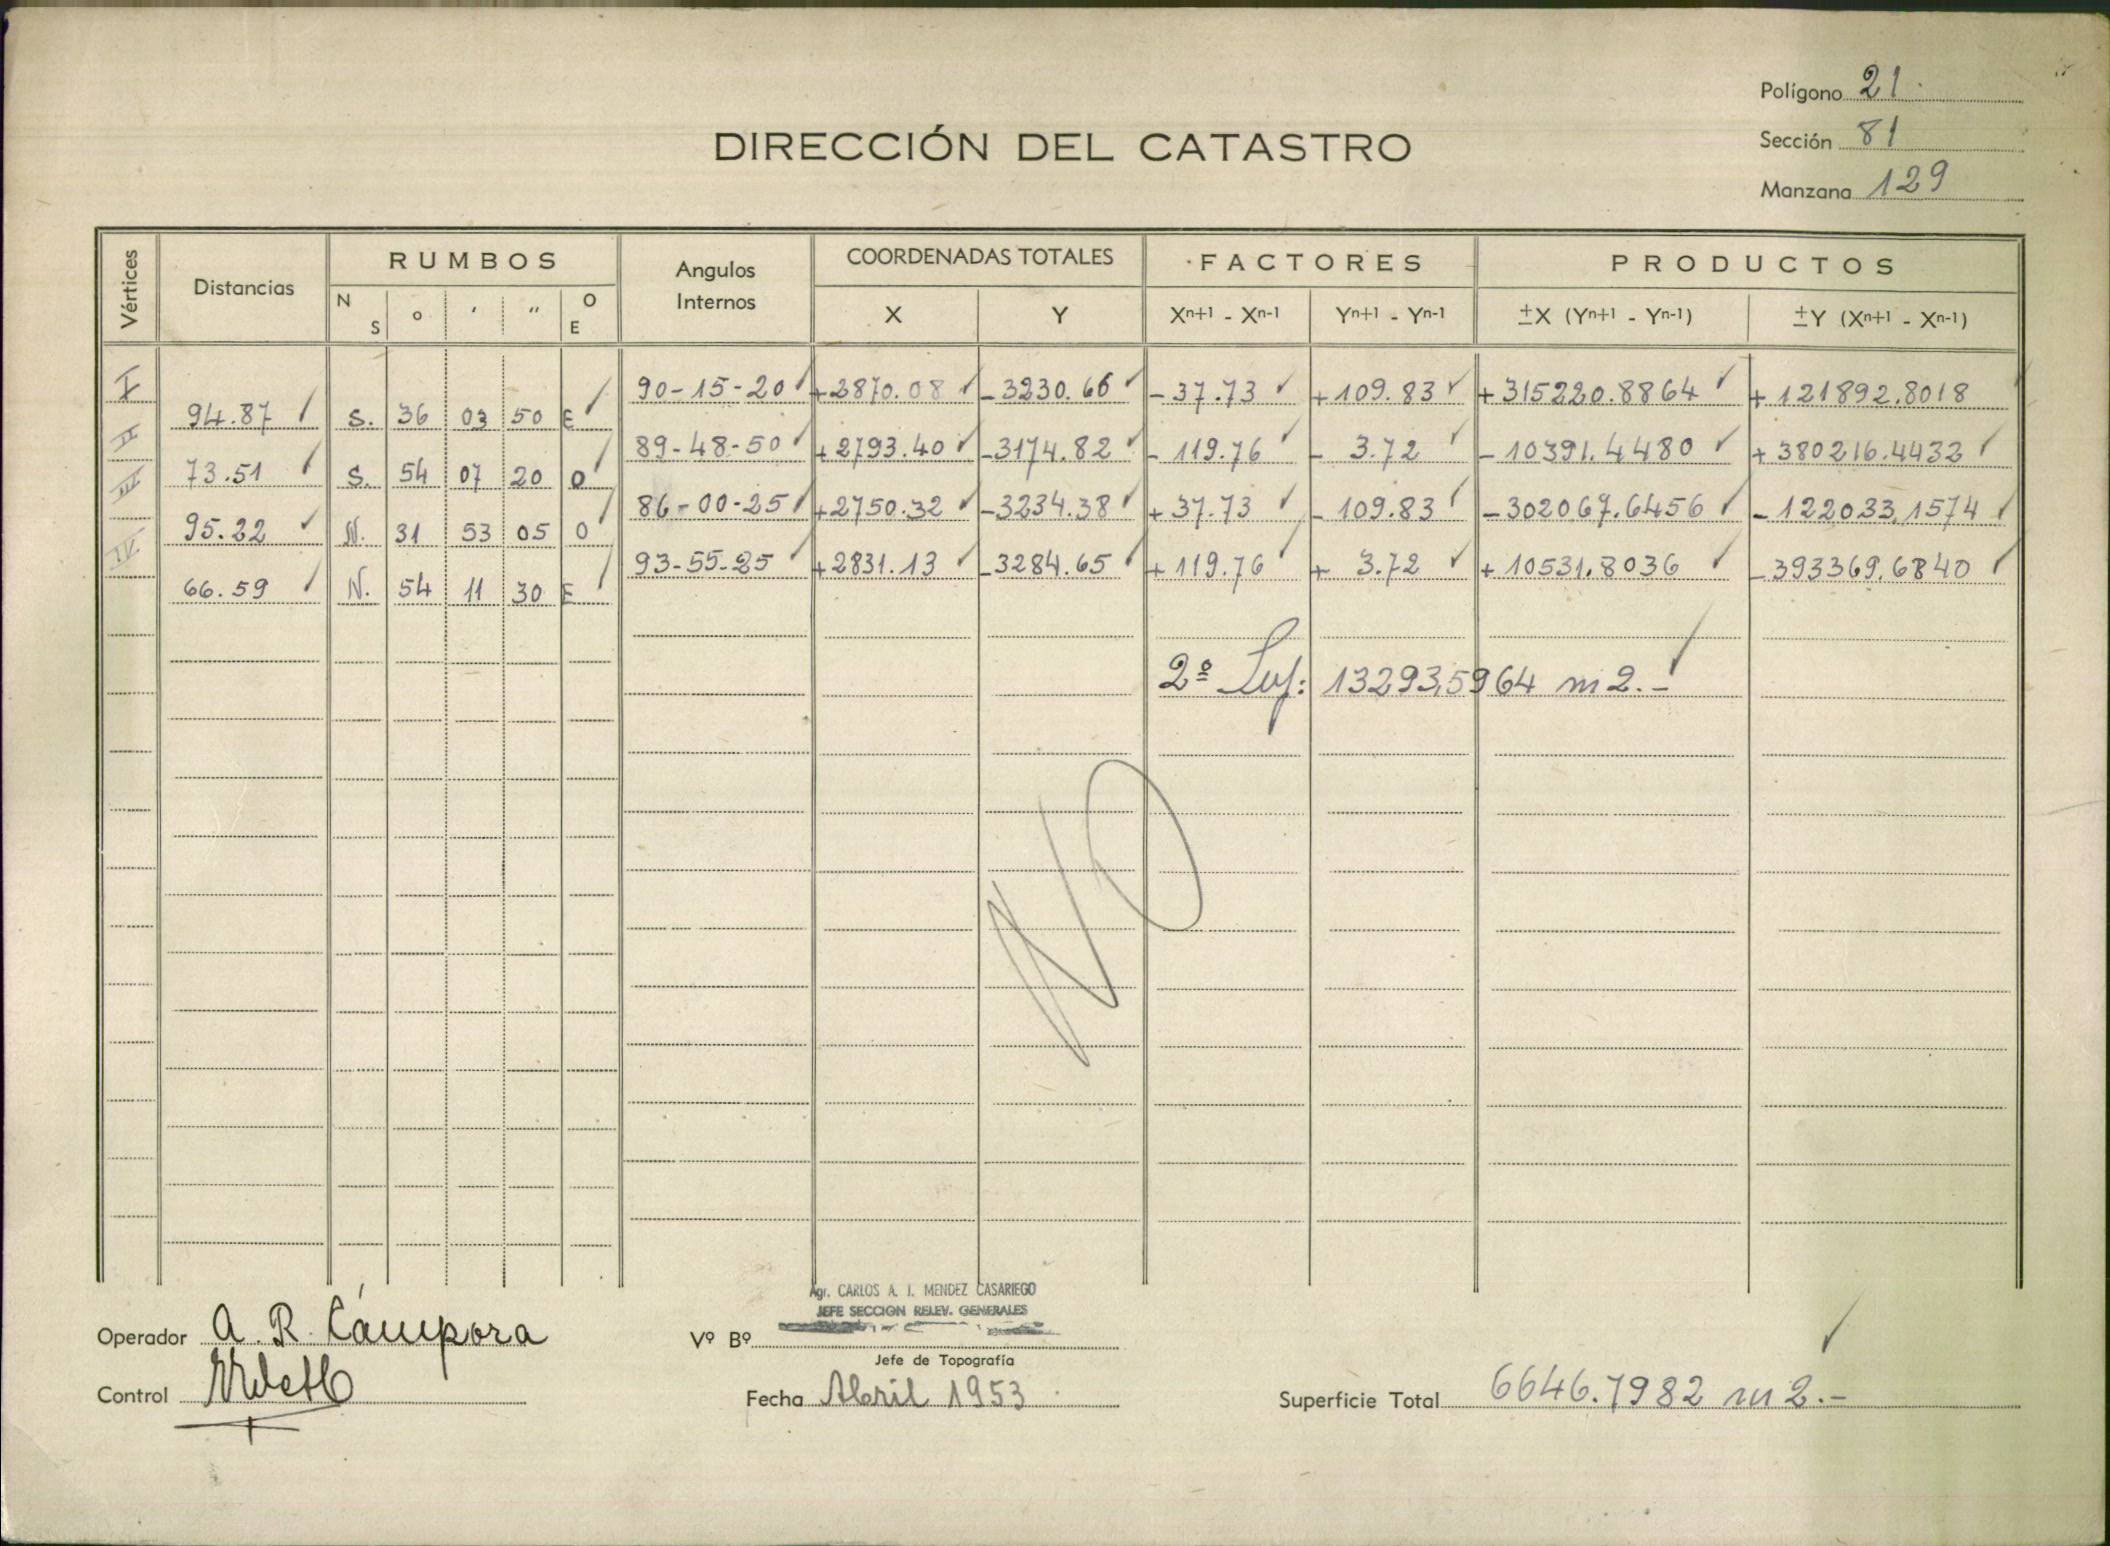 Polígono 21.
DIRECCIÓN DEL CATASTRO
Sección 81
Manzana 129
Vértices
Distancias
RUMBOS
N S ° ' " O E
Angulos Internos
COORDENADAS TOTALES
X Y
FACTORES
Xn+1 - Xn-1 Yn+1 - Yn-1
PRODUCTOS
±X (Yn+1 - Yn-1) ±Y (Xn+1 - Xn-1)
I 90-15-20 +2870.08 -3230.66 -37.73 +109.83 +315220.8864 +121892.8018
94.87 S. 36 03 50 E
II 89-48-50 +2793.40 -3174.82 -119.76 -3.72 -10391.4480 +380216.4432
73.51 S. 54 07 20 O
III 86-00-25 +2750.32 -3234.38 +37.73 -109.83 -302067.6456 -122033.1574
95.22 N. 31 53 05 O
IV 93-55-25 +2831.13 -3284.65 +119.76 +3.72 +10531.8036 -393369.6840
66.59 N. 54 11 30 E
2ª Sup: 13293,5964 m2.-
NO
Agr. CARLOS A. I. MENDEZ CASARIEGO
JEFE SECCION RELEV. GENERALES
Operador A. R. Cámpora
Vº Bº
Jefe de Topografía
Control
Fecha Abril 1953
Superficie Total 6646.7982 m2.-